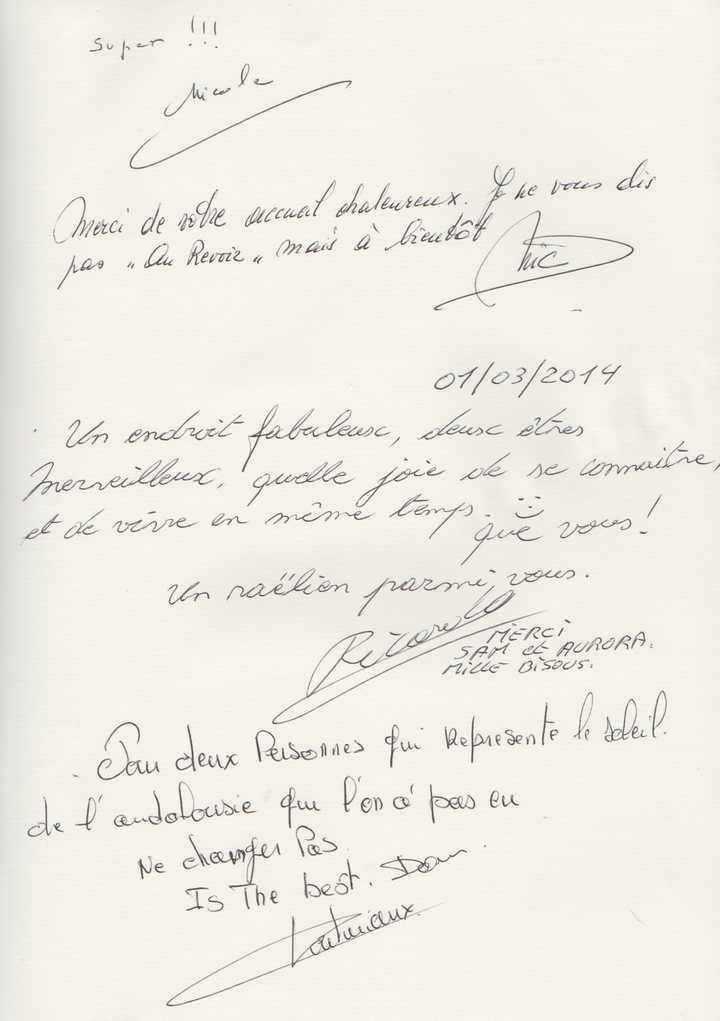 Super !!!
Nicole
Merci de votre accueil chaleureux. Je ne vous dis
pas " Au Revoir " mais à bientôt
01/03/2014
Un endroit fabuleux, deux êtres
merveilleux, quelle joie de se connaitre,
et de vivre en même temps
que vous !
Un raëlien parmi vous.
Ricardo
MERCI
SAM et AURORA.
MILLE BISOUS.
deux Personnes qui represente le soleil.
de l'andalousie que l'on a pas eu
Ne changer Pas
Is The best. Dom